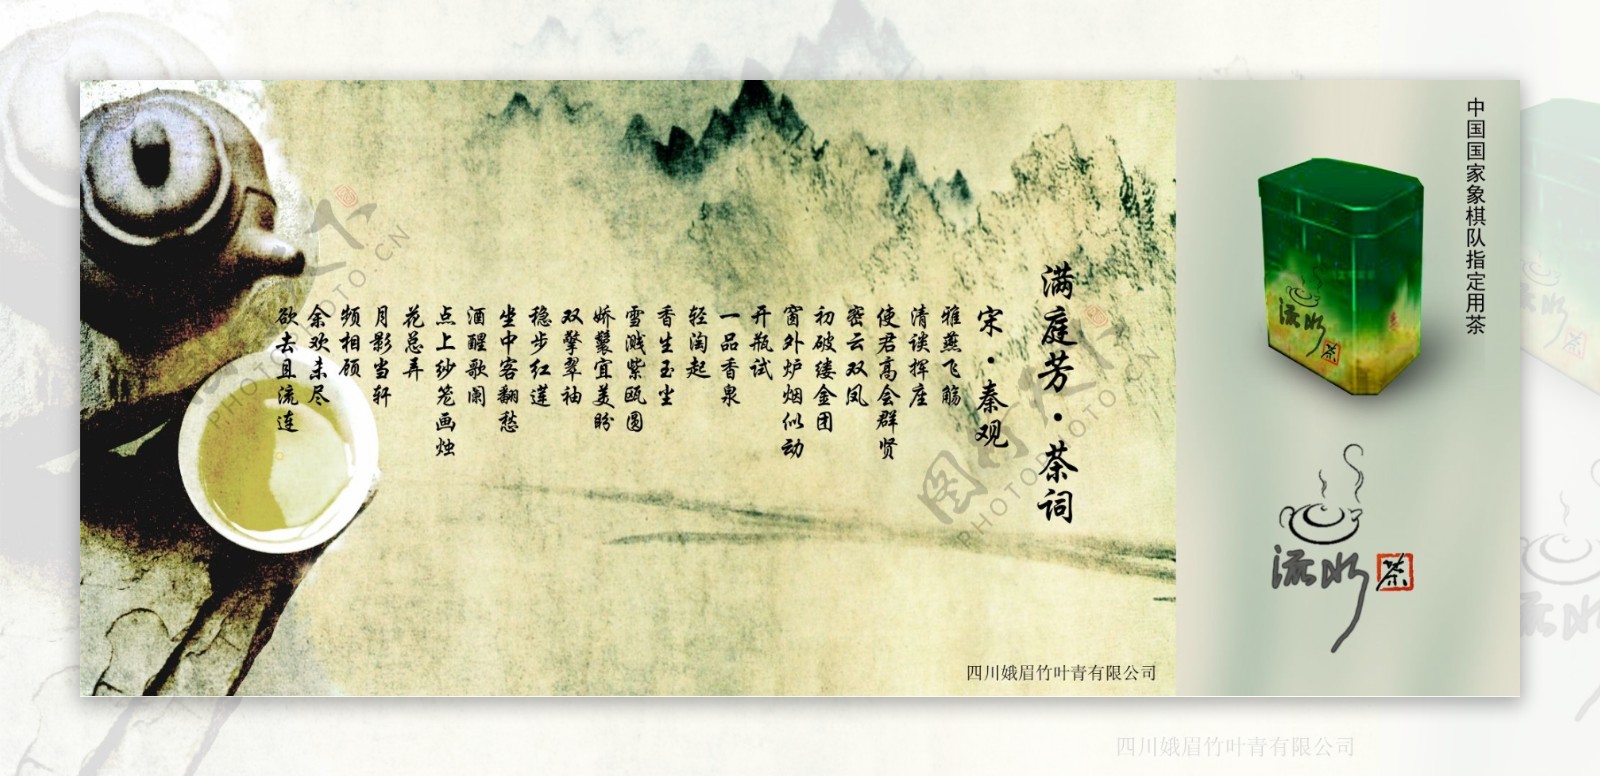 满庭芳·茶词
宋·秦观
雅燕飞觞
清谈挥座
使君高会群贤
密云双凤
初破缕金团
窗外炉烟似动
开瓶试
一品香泉
轻淘起
香生玉尘
雪溅紫瓯圆
娇鬟宜美盼
双擎翠袖
稳步红莲
坐中客翻愁
酒醒歌阑
点上纱笼画烛
花总弄
月影当轩
频相顾
余欢未尽
欲去且流连
四川娥眉竹叶青有限公司
中国国家象棋队指定用茶
流水
茶
流水
茶
四川娥眉竹叶青有限公司
PHOTOPHOTO.CN
PHOTOPHOTO.CN